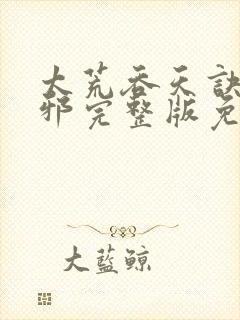 大荒吞天訣
邪完整版免
大藍鯨